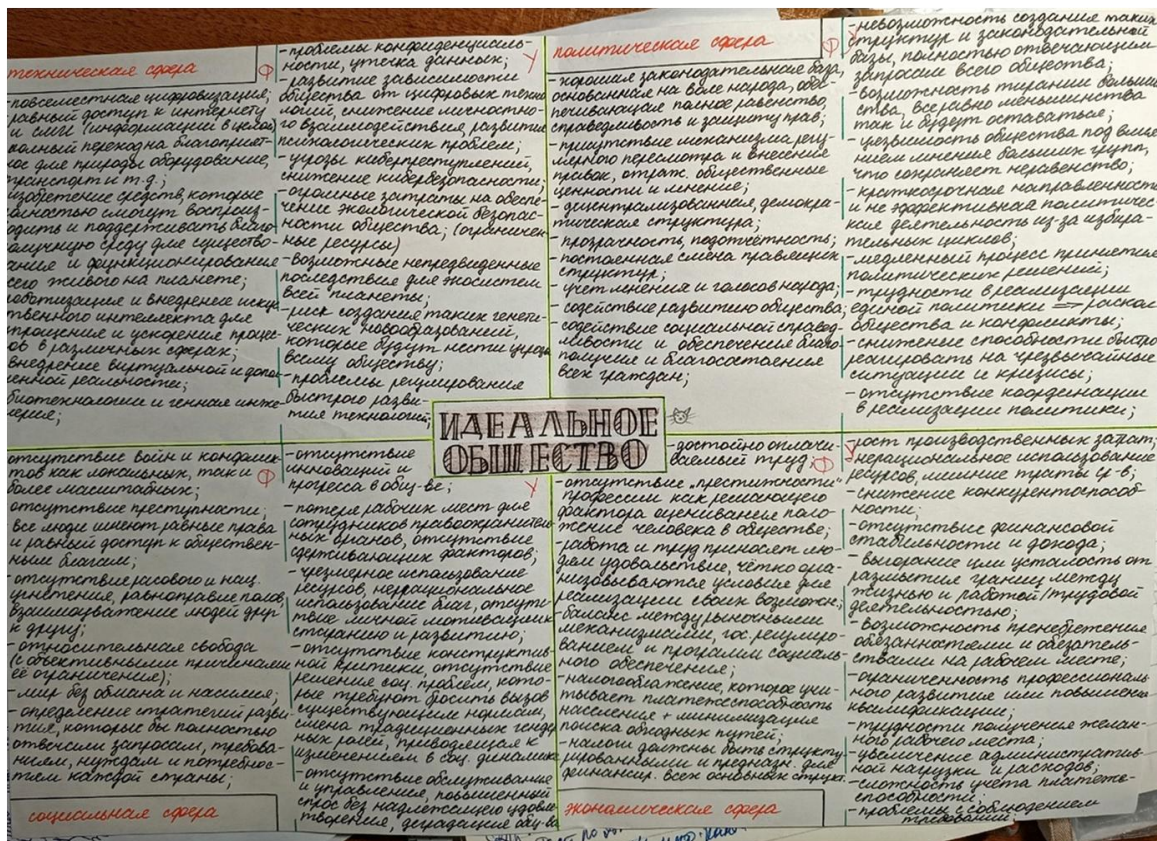 техническая сфера
Ф
- повсеместная цифровизация;
равный доступ к интернету
и СМИ (информации в целом)
полный переход на благоприят-
ное для природы оборудование,
транспорт и т.д.;
изобретение средств, которые
полностью смогут воспроиз-
водить и поддерживать благо-
получную среду для существо-
вания и функционирования
всего живого на планете;
роботизация и внедрение искус-
ственного интеллекта для
упрощения и ускорения процес-
сов в различных сферах;
внедрение виртуальной и допол-
ненной реальности;
биотехнологии и генная инже-
нерия;
- проблемы конфиденциаль-
ности, утечка данных;
У
- развитие зависимости
общества от цифровых техно-
логий, снижение личностно-
го взаимодействия, развитие
психологических проблем;
- угрозы киберпреступлений,
снижение кибербезопасности;
- огромные затраты на обеспе-
чение экологической безопас-
ности общества; (ограничен-
ные ресурсы)
- возможные непредвиденные
последствия для экосистем
всей планеты;
- риск создания таких генети-
ческих новообразований,
которые будут нести угрозу
всему обществу;
- проблемы регулирования
быстрого разви-
тия технологий;
политическая сфера
Ф
- хорошая законодательная база,
основанная на воле народа, обес-
печивающая полное равенство,
справедливость и защиту прав;
- присутствие механизма регу-
лярного пересмотра и внесения
правок, отраж. общественные
ценности и мнение;
- децентрализованная, демокра-
тическая структура;
- прозрачность, подотчётность;
- постоянная смена правящих
структур;
- учет мнения и голосов народа;
- содействие развитию общества;
- содействие социальной справед-
ливости и обеспечения благо-
получия и благосостояния
всех граждан;
- невозможность создания таких
У
структур и законодательной
базы, полностью отвечающим
запросам всего общества;
- возможность тирании большин-
ства, всё равно меньшинства
так и будут оставаться;
- уязвимость общества под влия-
нием мнения больших групп,
что сохраняет неравенство;
- краткосрочная направленность
и не эффективная политичес-
кая деятельность из-за избира-
тельных циклов;
- медленный процесс принятия
политических решений;
- трудности в реализации
единой политики => раскол
общества и конфликты;
- снижение способности быстро
реагировать на чрезвычайные
ситуации и кризисы;
- отсутствие координации
в реализации политики;
ИДЕАЛЬНОЕ
ОБЩЕСТВО
отсутствие войн и конфлик-
тов как локальных, так и
Ф
более масштабных;
отсутствие преступности;
все люди имеют равные права
и равный доступ к обществен-
ным благам;
- отсутствие расового и нац.
угнетения, равноправие полов,
взаимоуважение людей друг
к другу;
- относительная свобода
(с объективными причинами
её ограничения);
- мир без обмана и насилия;
- определение стратегий разви-
тия, которые бы полностью
отвечали запросам, требова-
ниям, нуждам и потребнос-
тям каждой страны;
социальная сфера
- отсутствие
инноваций и
прогресса в общ-ве;
У
- потеря рабочих мест для
сотрудников правоохранитель-
ных органов, отсутствие
сдерживающих факторов;
- чрезмерное использование
ресурсов, нерациональное
использование благ, отсутс-
твие личной мотивации к
старанию и развитию;
- отсутствие конструктив-
ной критики, отсутствие
решения соц. проблем, кото-
рые требуют бросить вызов
существующим нормам,
смена традиционных генде-
рных ролей, приводящая к
изменениям в соц. динамике
- отсутствие обслуживания
и управления, повышенный
спрос без надлежащего удовле-
творения, деградация общ-ва
- достойно оплачи-
ваемый труд;
Ф
- отсутствие "престижности"
профессии как решающего
фактора оценивания поло-
жение человека в обществе;
- работа и труд приносят лю-
дям удовольствие, чётко орга-
низовываются условия для
реализации своих возможн.;
- баланс между рыночными
механизмами, гос. регулиро-
ванием и программ социаль-
ного обеспечения;
- налогообложение, которое учи-
тывает платежеспособность
населения + минимизация
поиска обходных путей;
- налоги должны быть структу-
рированными и предназн. для
финансир. всех основных структ.
экономическая сфера
- рост производственных затрат;
У
- нерациональное использование
ресурсов, лишние траты ср-в;
- снижение конкурентоспособ-
ности;
- отсутствие финансовой
стабильности и дохода;
- выгорание или усталость от
размытия границ между
жизнью и работой/трудовой
деятельностью;
- возможность пренебрежения
обязанностями и обязатель-
ствами на рабочем месте;
- ограниченность профессиональ-
ного развития или повышения
квалификации;
- трудности получения желан-
ного рабочего места;
- увеличение административ-
ной нагрузки и расходов;
- сложность учета платеже-
способности;
- проблемы с соблюдением
требований;